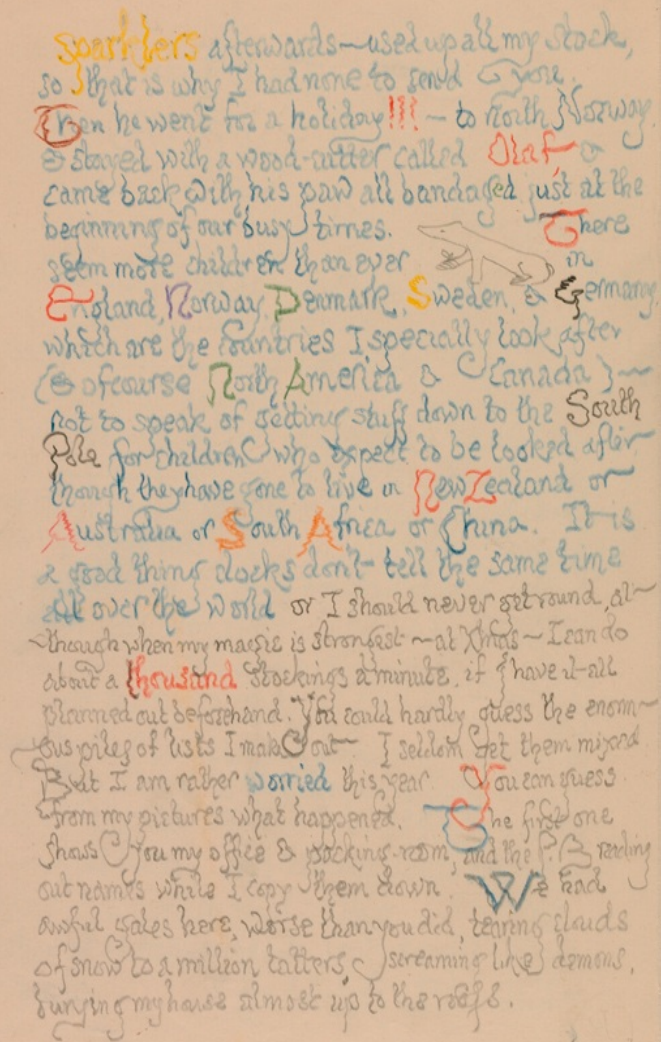 sparklers afterwards—used up all my stock,
so that is why I had none to send you.
Then he went for a holiday!!! — to North Norway
& stayed with a wood-cutter called Olaf &
came back with his paw all bandaged just at the
beginning of our busy times. There
seem more children than ever in
England, Norway, Denmark, Sweden, & Germany,
which are the countries I specially look after
(& of course North America & Canada)—
not to speak of getting stuff down to the South
Pole for children who expect to be looked after
though they have gone to live in New Zealand or
Australia or South Africa or China. It is
a good thing clocks don't tell the same time
all over the world or I should never get round, al-
-though when my magic is strongest—at Xmas—I can do
about a thousand stockings a minute, if I have it all
planned out beforehand. You could hardly guess the enorm-
-ous piles of lists I make out I seldom get them mixed.
But I am rather worried this year. You can guess
from my pictures what happened. The first one
shows you my office & packing-room, and the P.B reading
out names while I copy them down. We had
awful gales here, worse than you did, tearing clouds
of snow to a million tatters, screaming like demons,
burying my house almost up to the roofs.